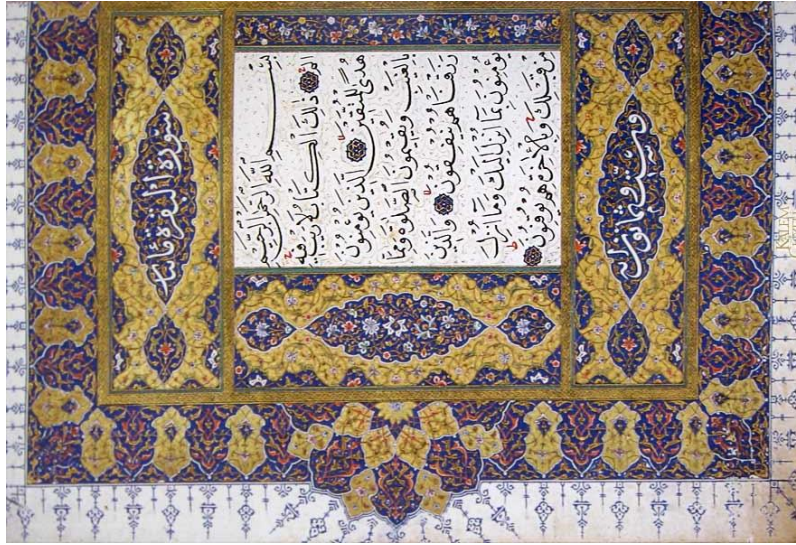 سورة البقرة مائتا
بِسْمِ اللهِ الرَّحْمٰنِ الرَّحِيمِ
الٓمٓ ذٰلِكَ الْكِتَابُ لَا رَيْبَ فِيهِ
هُدًى لِلْمُتَّقِينَ الَّذِينَ يُؤْمِنُونَ
بِالْغَيْبِ وَيُقِيمُونَ الصَّلٰوةَ وَمِمَّا
رَزَقْنَاهُمْ يُنْفِقُونَ وَالَّذِينَ
يُؤْمِنُونَ بِمَا اُنْزِلَ اِلَيْكَ وَمَا اُنْزِلَ
مِنْ قَبْلِكَ وَبِالْاٰخِرَةِ هُمْ يُوقِنُونَ
وست وثمانون آية